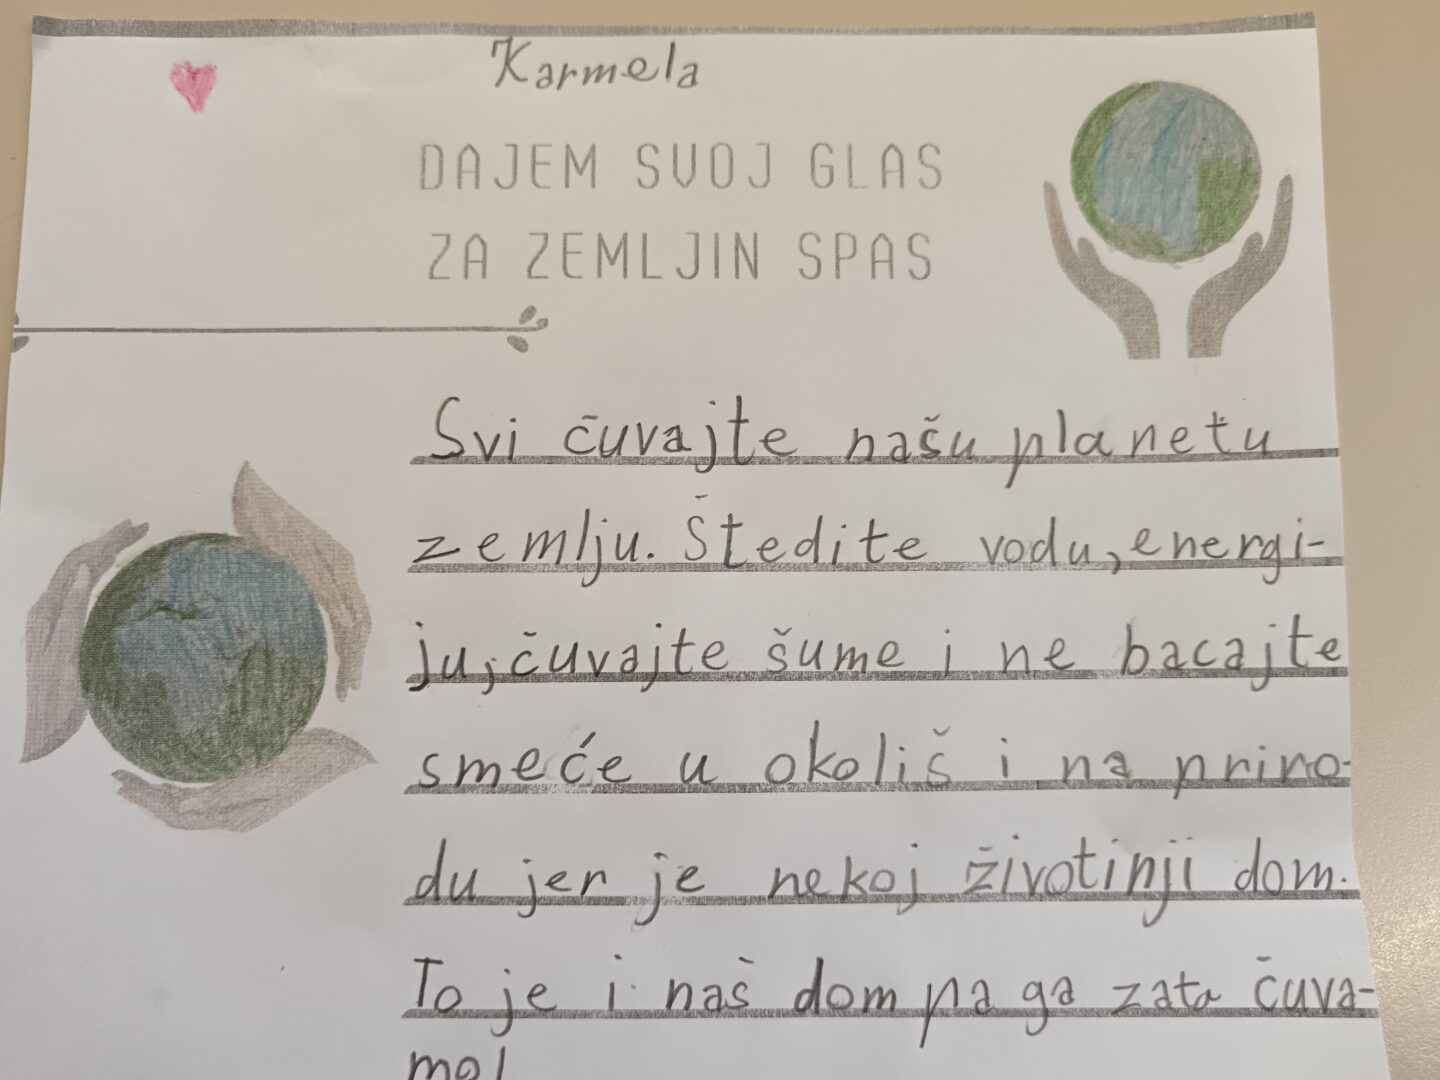 Karmela
DAJEM SVOJ GLAS
ZA ZEMLJIN SPAS
Svi čuvajte našu planetu
zemlju. Štedite vodu, energi-
ju, čuvajte šume i ne bacajte
smeće u okoliš i na priro-
du jer je nekoj životinji dom.
To je i naš dom pa ga zato čuva-
mo!